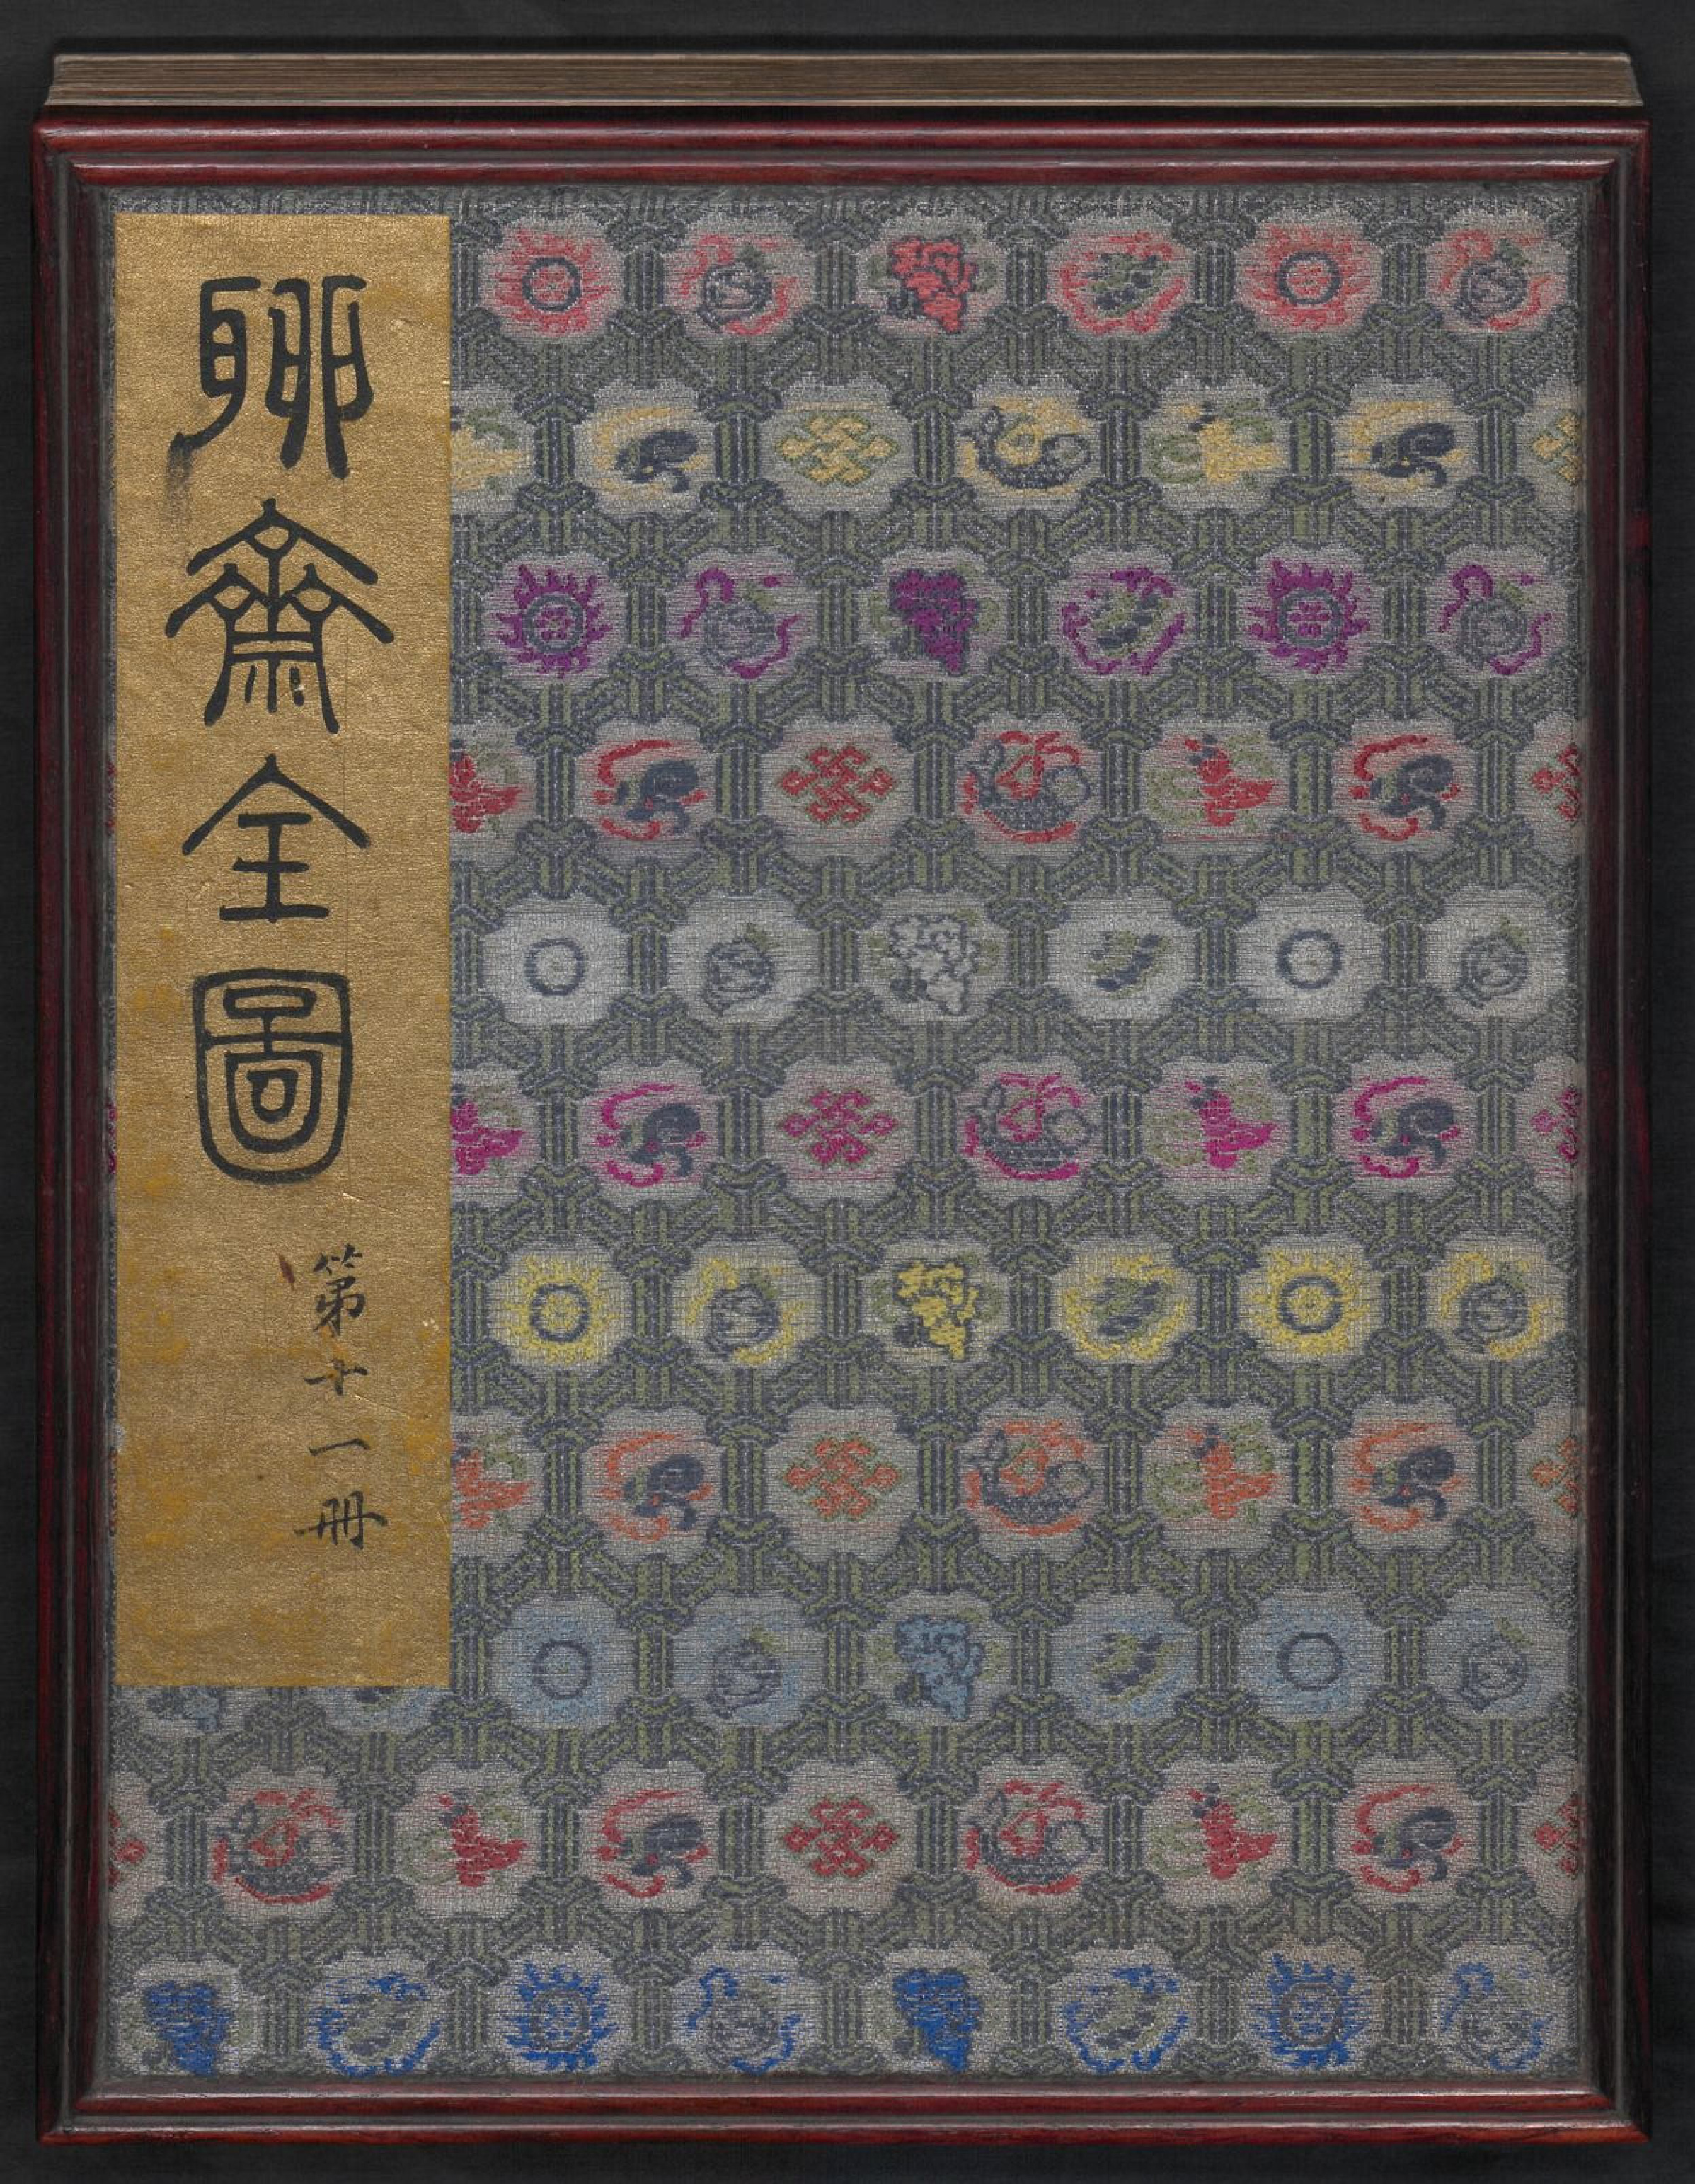 聊齋全圖
第十一冊